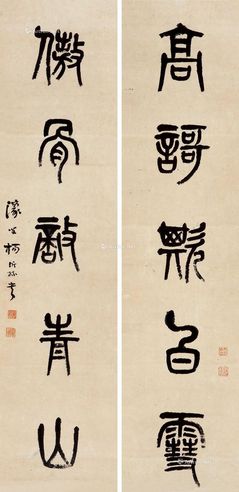 高謌白雪
傲骨敵青山
濠叟楊沂孫書